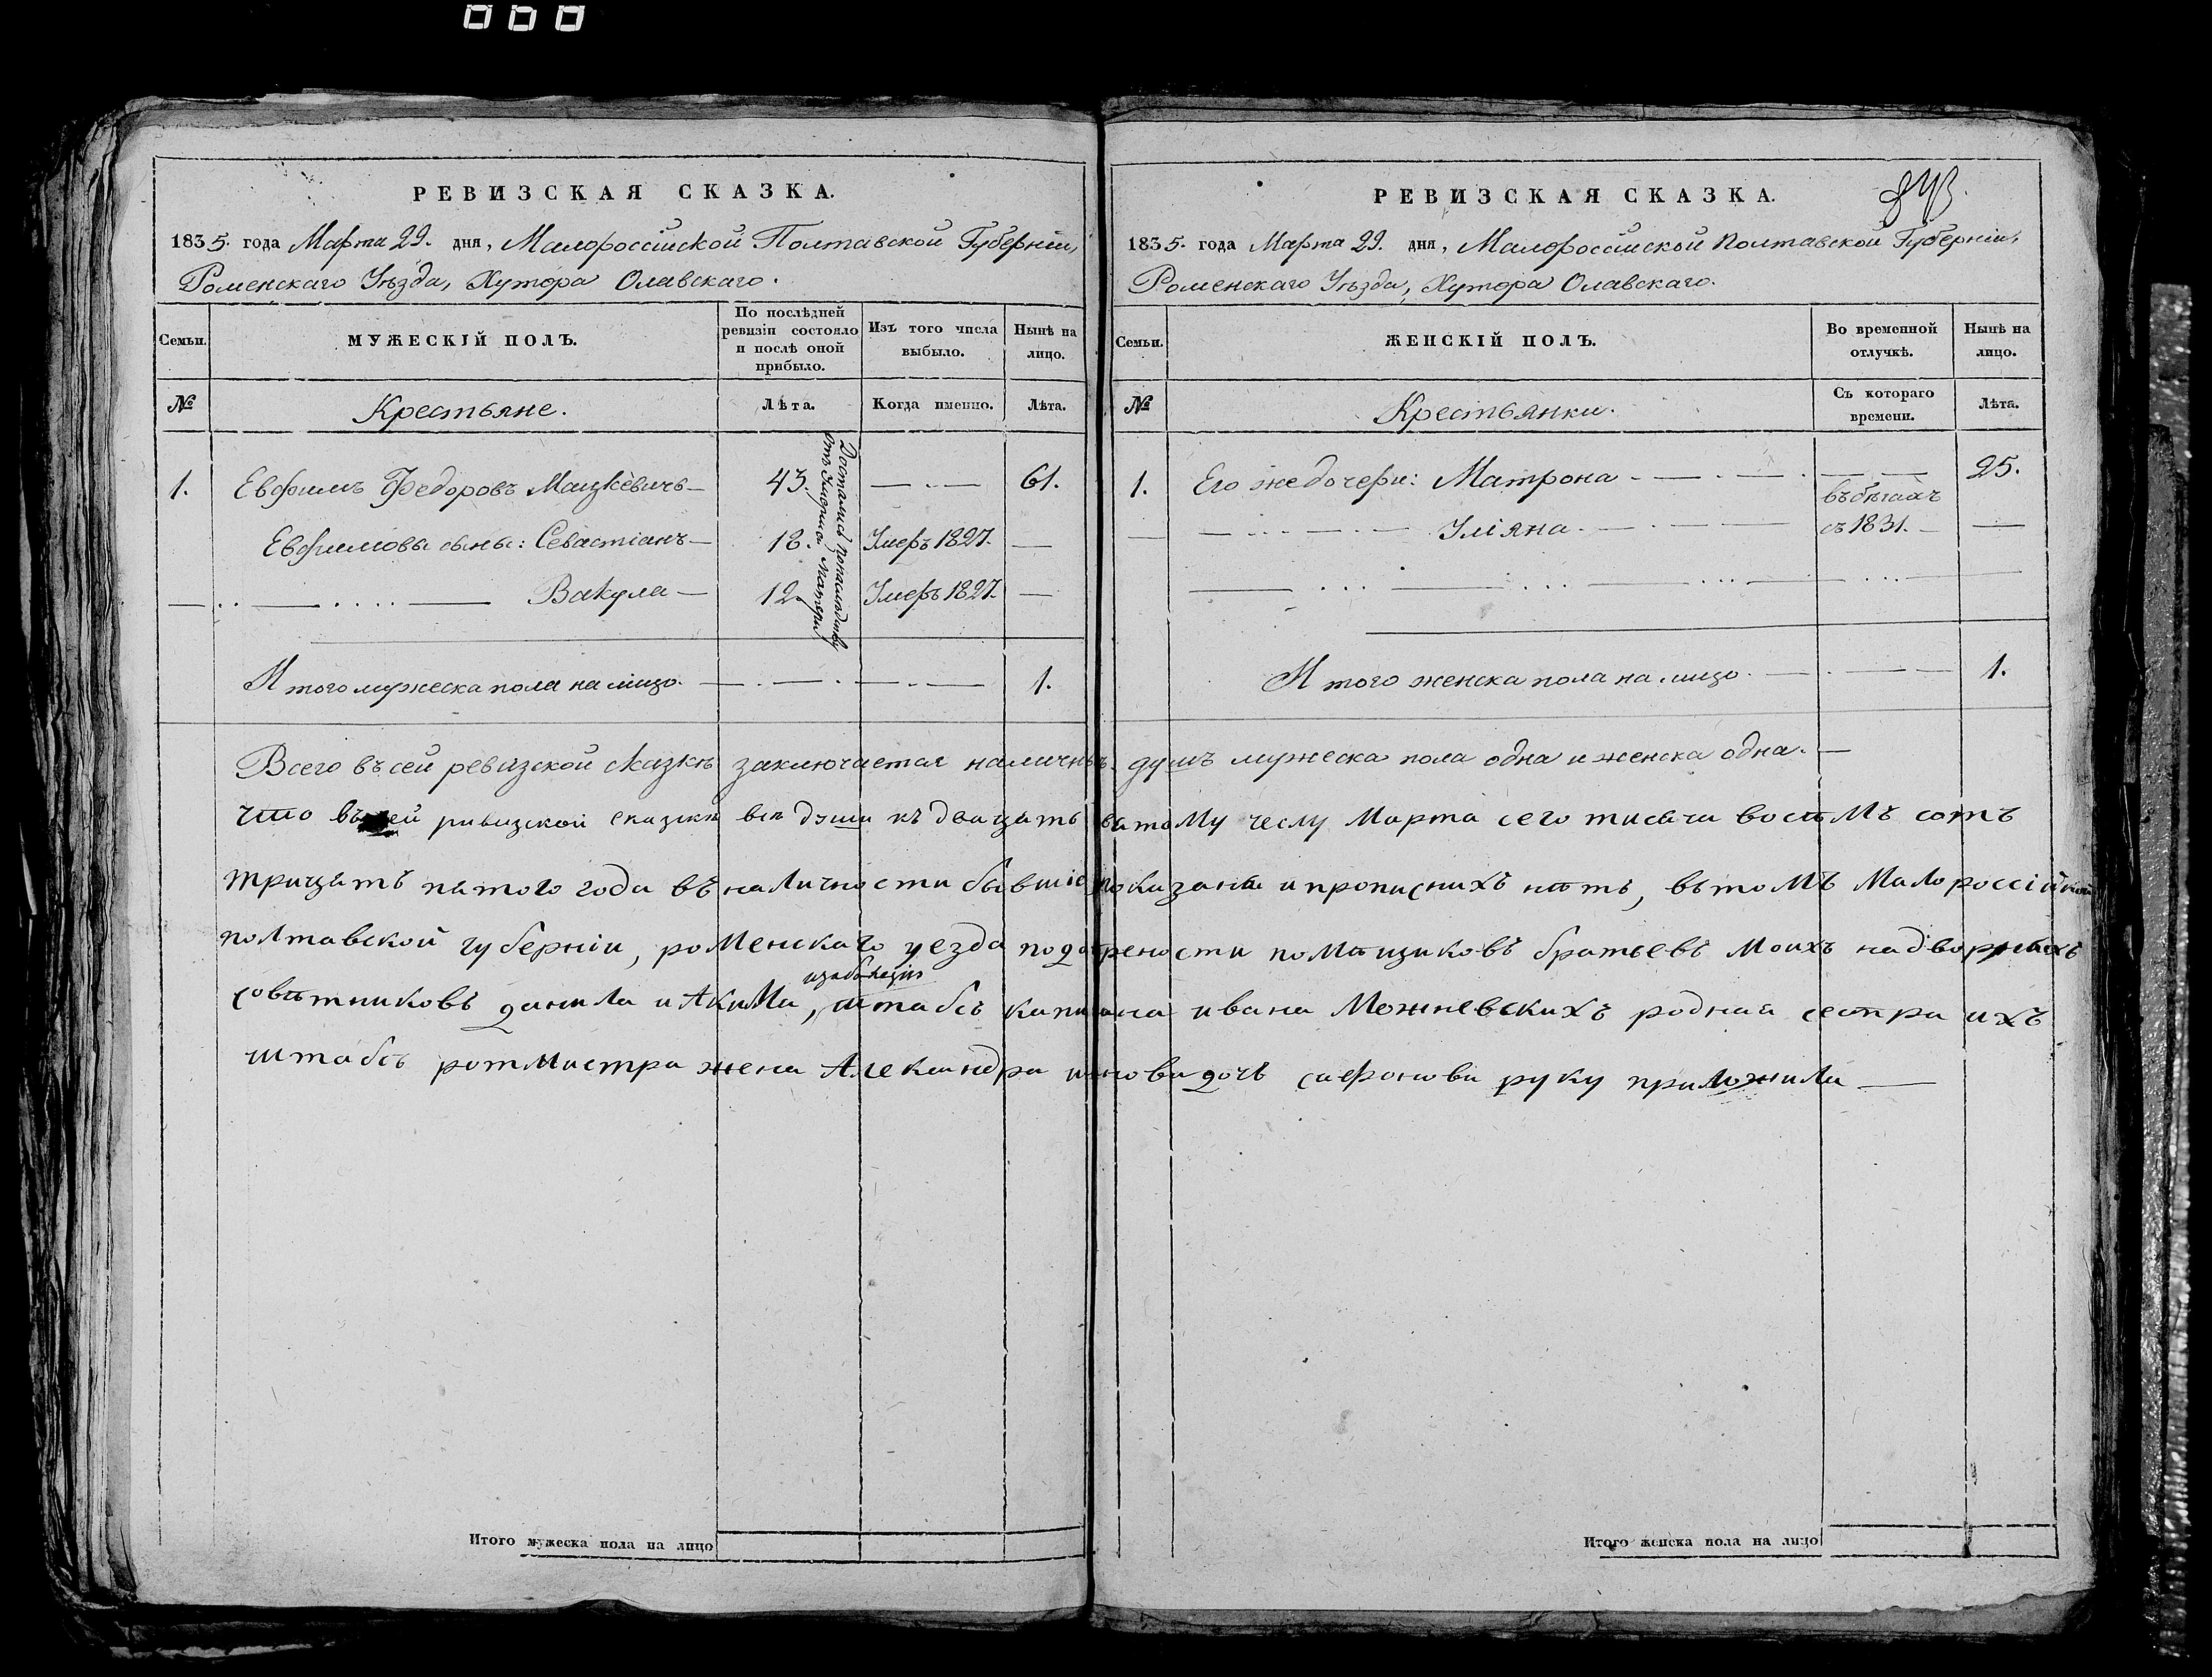 РЕВИЗСКАЯ СКАЗКА.
1835. года Марта 29. дня, Малороссійской Полтавской Губерніи,
Роменскаго Уѣзда, Хутора Олавскаго.
Семьи.
МУЖЕСКІЙ ПОЛЪ.
По послѣдней ревизіи состояло и послѣ оной прибыло.
Изъ того числа выбыло.
Нынѣ на лицо.
№
Крестьяне.
Лѣта.
Когда именно.
Лѣта.
1. Евфимъ Федоровъ Мацкевичъ — 43. — · — 61.
Евфимовы сыны: Севастіанъ — 18. Умеръ 1827. —
Вакула — 12. Умеръ 1827. —
Достались по наслѣдству
отъ матери
И того мужеска пола на лицо. 1.
РЕВИЗСКАЯ СКАЗКА.
1835. года Марта 29. дня, Малороссійской Полтавской Губерніи,
Роменскаго Уѣзда, Хутора Олавскаго.
Семьи.
ЖЕНСКІЙ ПОЛЪ.
Во временной отлучкѣ.
Нынѣ на лицо.
№
Крестьянки.
Съ котораго времени.
Лѣта.
1. Его же дочери: Матрона — 25.
Уліяна въ бѣгахъ
съ 1831. —
И того женска пола на лицо. 1.
Всего въ сей ревизской сказкѣ заключается наличныхъ душъ мужеска пола одна и женска одна. —
что въ сей ривизской сказки вси души къ двацать вятому числу Марта сего тисячи восемъ сотъ
трицать пятого года въ наличности бывшіе показаны и прописнихъ нѣтъ, вътомъ Малороссійской
полтавской губерніи, роменскаго уезда по довѣрености помѣщиковъ братьевъ Моихъ надворныхъ
совѣтниковъ данила и Акима, штабсъ капитана ивана родная сестра ихъ
штабсъ ротмистра жена Александра иванова дочь сафонова руку приложила —
Итого мужеска пола на лицо
Итого женска пола на лицо